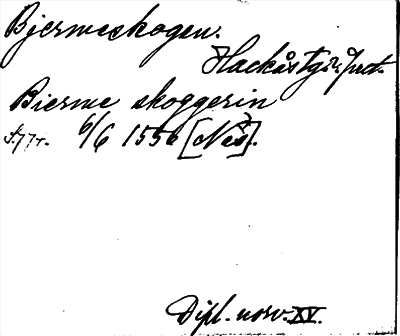 Bjermeskogen.
Hackås tg. Jmt.
Bierme skoggerin
s. 77 r. 6/6 1556 [Näs].
Dipl. norv. XV.